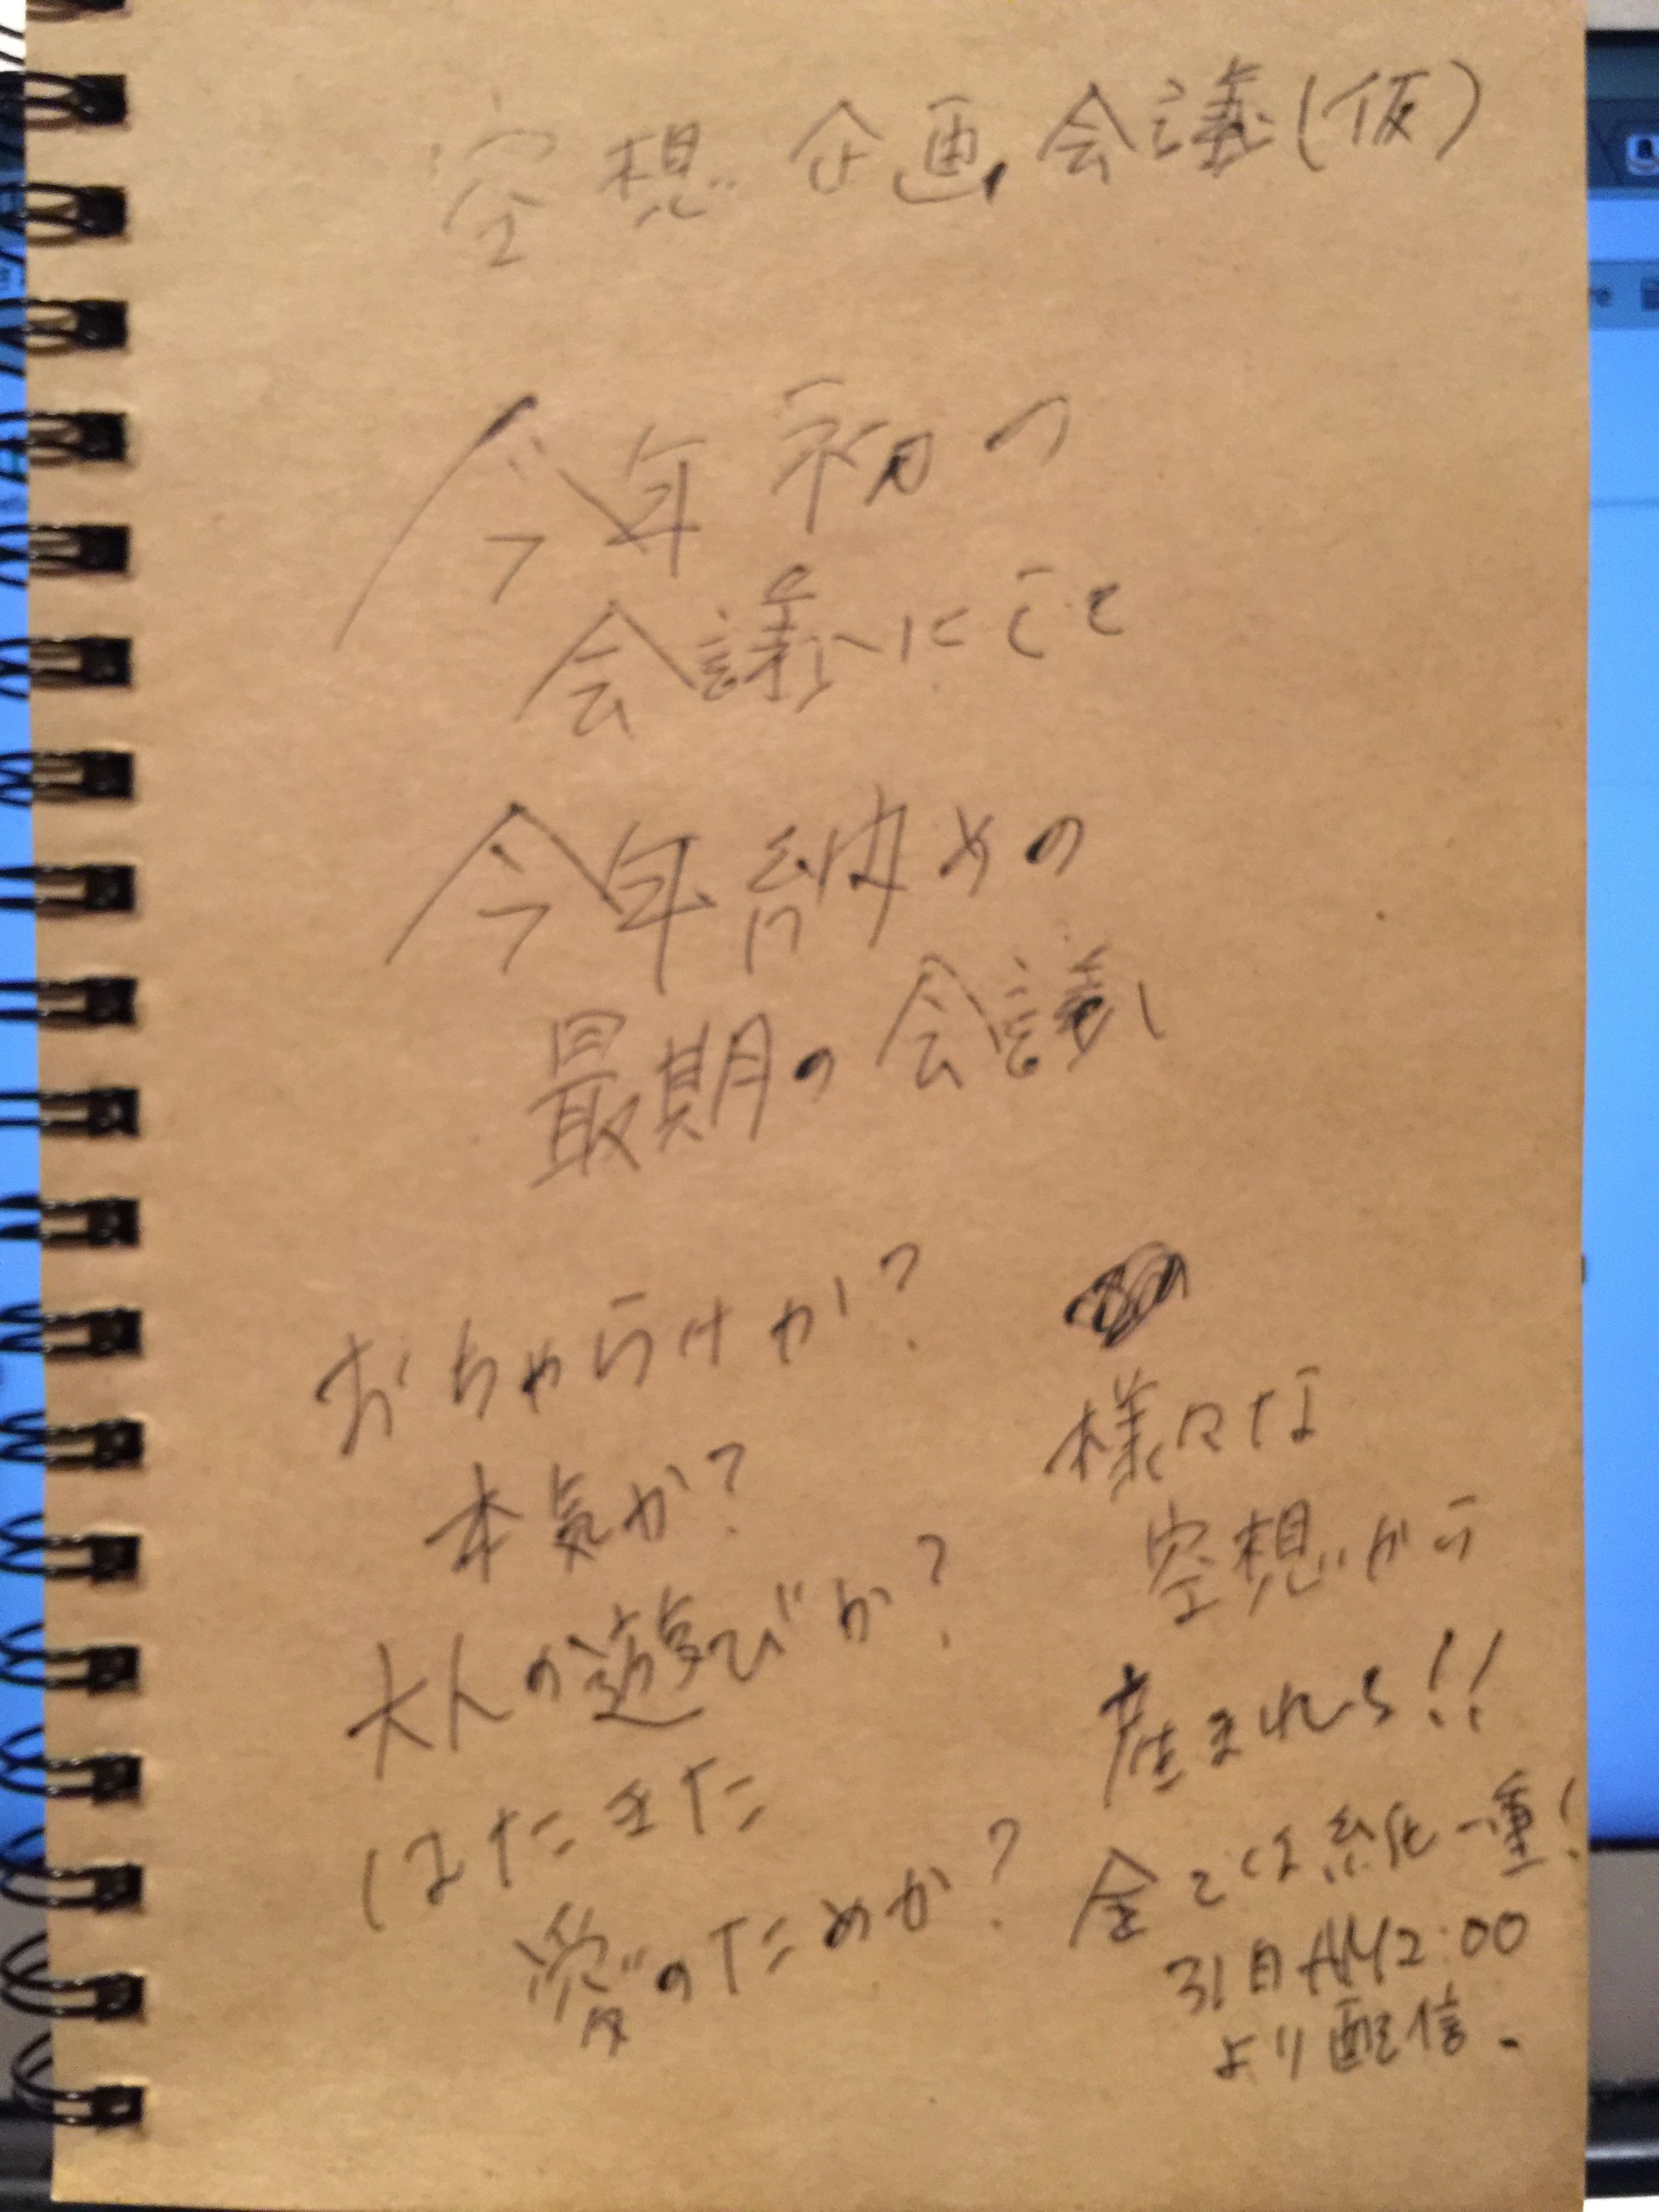 空想 企画 会議(仮)
今年初の
会議にして
今年納めの
最期の会議
おちゃらけか?
本気か?
大人の遊びか?
はたまた
愛のためか?
様々な
空想から
産まれる!!
全ては紙一重!
31日AM2:00
より配信.